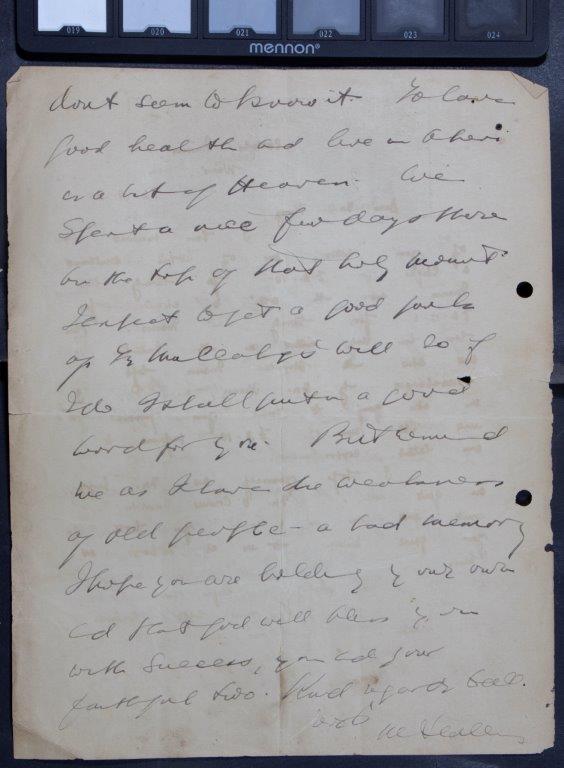 019 020 021 022 023 024
mennon®
dont seem to know it. To have
good health ad live in
is a bit of Heaven. We
spent a nice few days there
on the top of that holy mount
I expect to get a good
of will so if
I do I shall put in a good
word for you. But remind
me as I have the weakness
of old people - a bad memory
I hope you are holding your own
ad that god will bless you
with success, you ad your
faithful two. Kind regards to all.